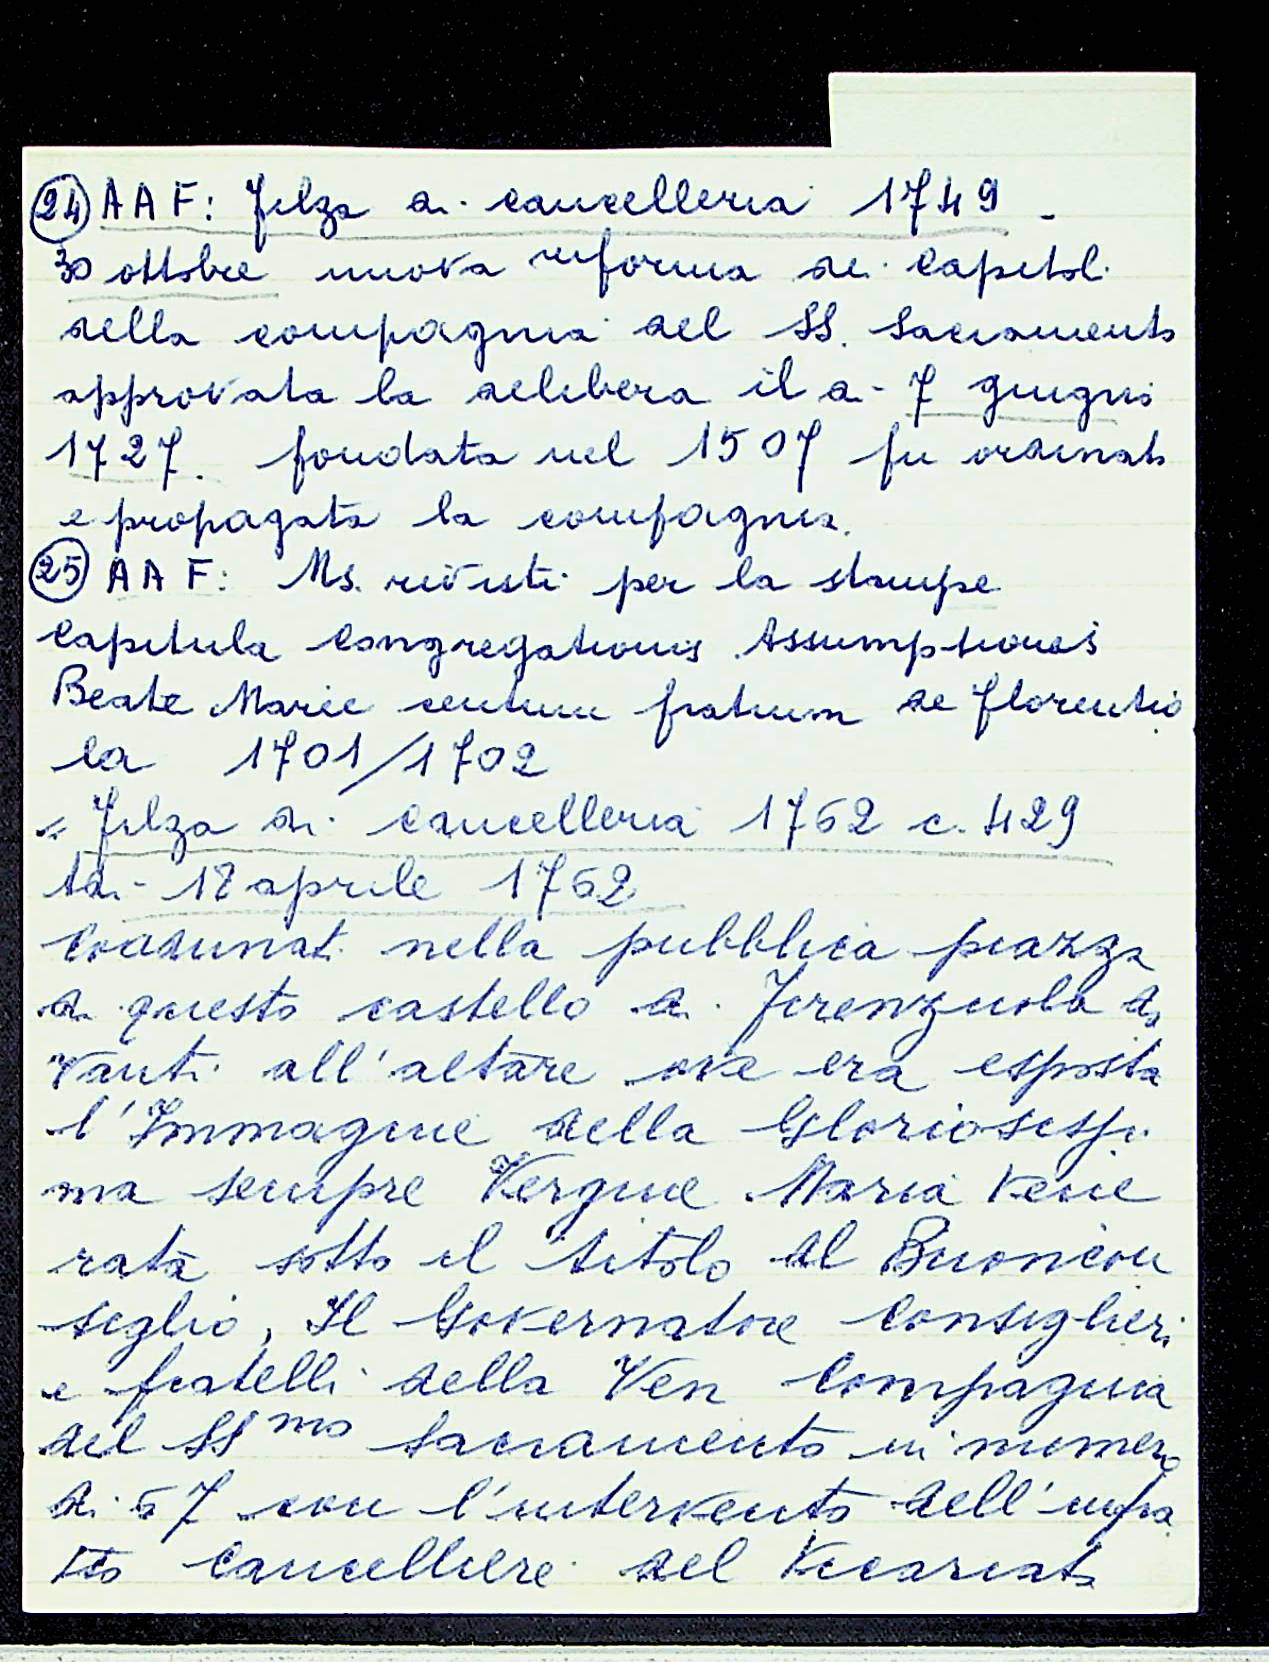 24 AAF: Filza di cancelleria 1749 -
30 ottobre nuova riforma dei Capitoli
della compagnia del SS. Sacramento
approvata la delibera il dì 7 giugno
1727. fondata nel 1507 fu ordinata
e propagata la compagnia.
25 AAF: Ms. rivisti per la stampe
Capitula Congregationis Assumptionis
Beate Marie centum fratrum de florentio
la 1701/1702
Filza di cancelleria 1762 c. 429
aprile 1762
Coadunati nella pubblica piazza
di questo castello di Firenzuola da
vanti all'altare ove era esposta
l'Immagine della Gloriosissi
ma sempre Vergine Maria vene
rata sotto il titolo del Buoncon
siglio, Il Governatore Consiglieri
e fratelli della Ven Compagnia
del SSmo Sacramento in numero
di 57 con l'intervento dell'infra
tto Cancelliere del Vicariato